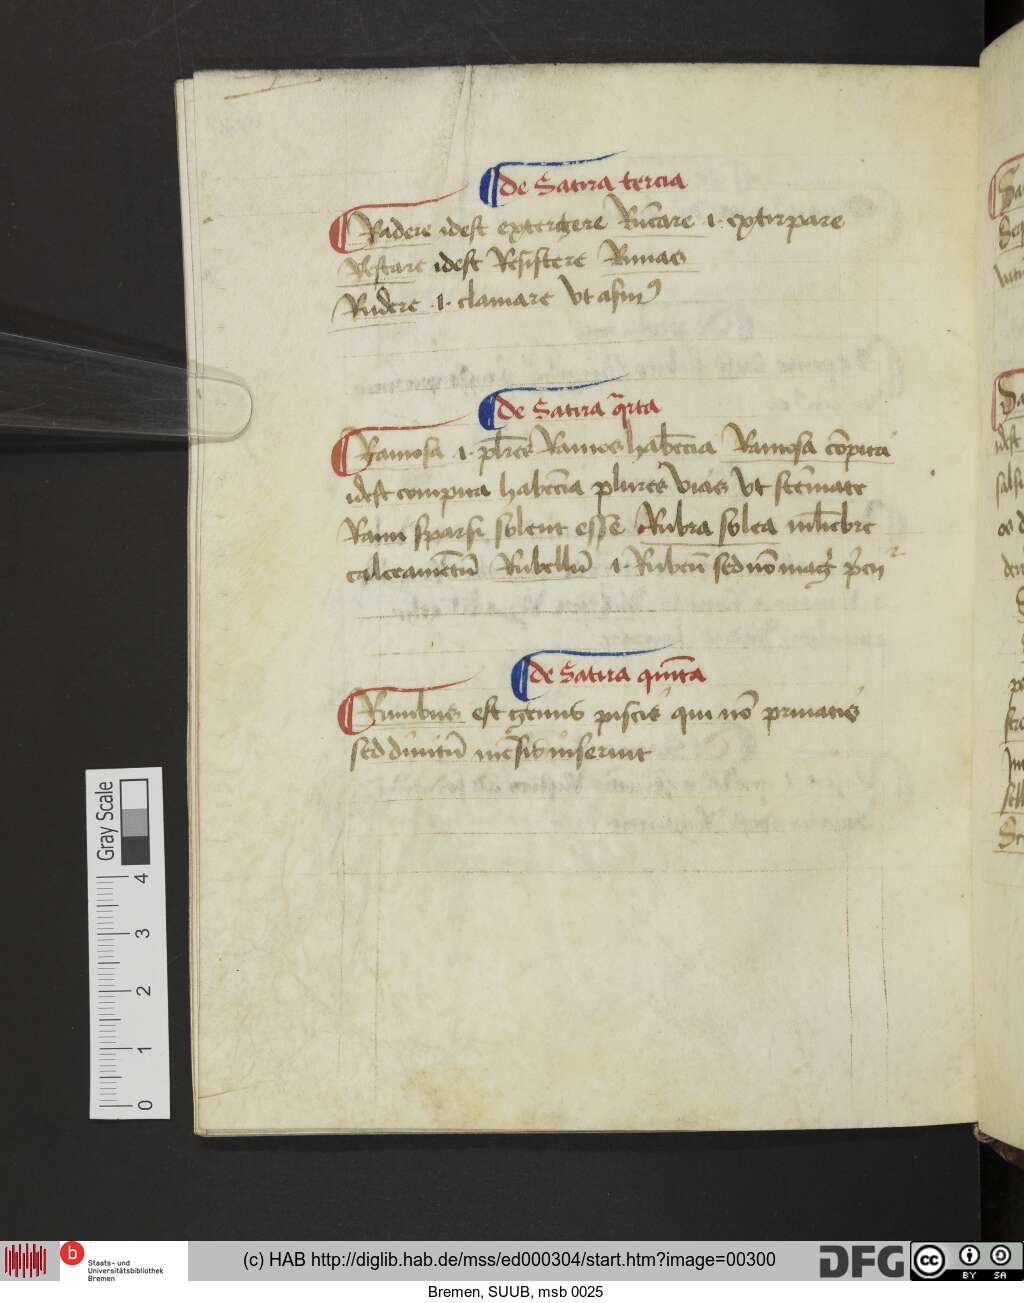 de Satira tercia
Radere idest extergere Rūcare .i. extirpare
Restare idest Resistere Rimas
Rudere .i. clamare Vt asinꝰ
de Satira qͣrta
Ramosa .i. pl̄res Ramos hab̄ēcia Ramosa cōpita
idest compita habēcia plures vias Vt stēmate
Rami sparsi solent esse Rubra solea mul̄iebre
calceamētū Rubellū .i. Rubeū sed nō
de Satira quīta
Rumbus est genus piscis qui nō priuatis
sed diuitū mēsis inseruit
Gray Scale
4
3
2
1
0
b
Staats- und
Universitätsbibliothek
Bremen
(c) HAB http://diglib.hab.de/mss/ed000304/start.htm?image=00300
DFG
cc
BY SA
Bremen, SUUB, msb 0025